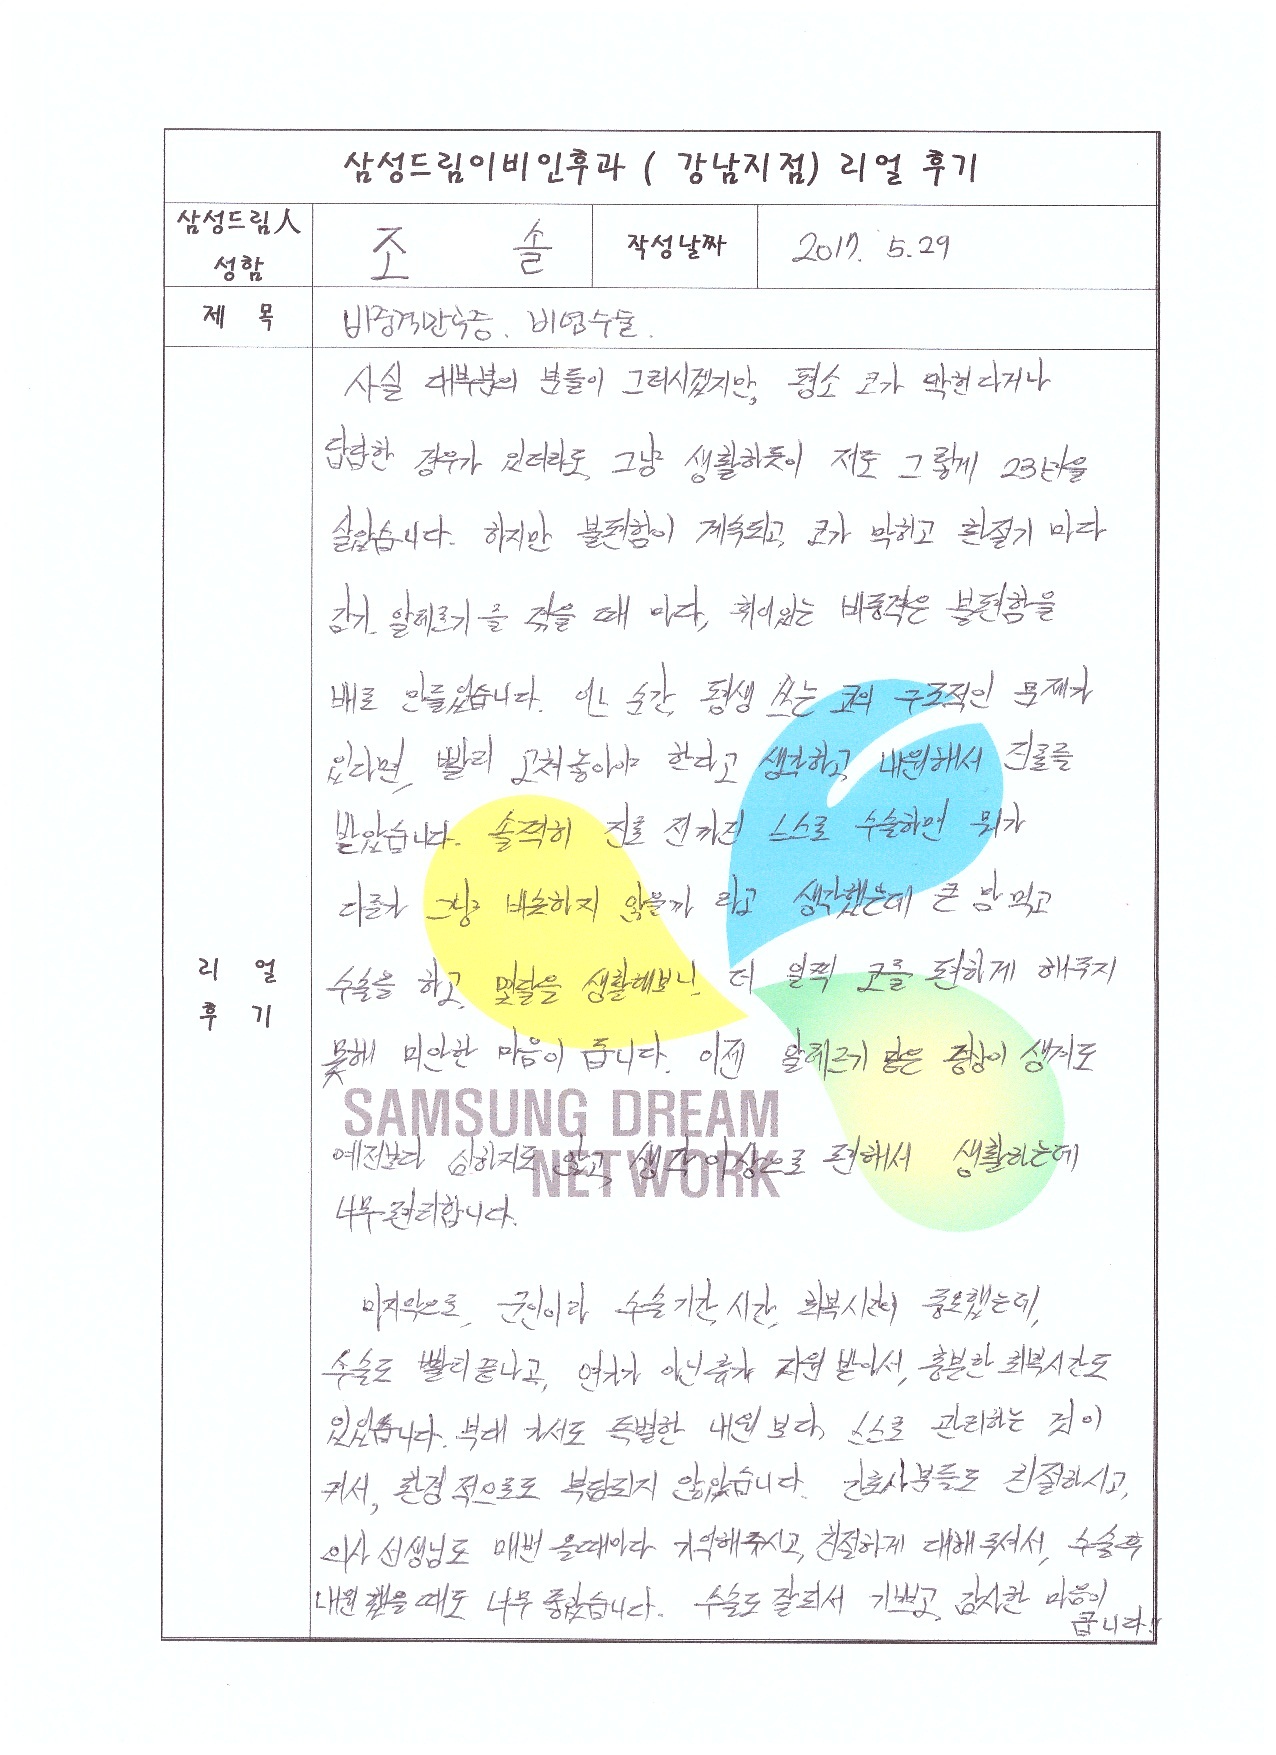 삼성드림이비인후과 ( 강남지점) 리얼 후기
삼성드림人 성함
조 솔
작성날짜
2017. 5.29
제 목
비중격만곡증. 비염수술.
리 얼 후 기
사실 대부분의 분들이 그러시겠지만, 평소 코가 막힌다거나
답답한 경우가 있더라도, 그냥 생활하듯이 저도 그렇게 23년을
살았습니다. 하지만 불편함이 계속되고, 코가 막히고 환절기 마다
감기. 알레르기를 겪을 때 마다, 휘어있는 비중격은 불편함을
배로 만들었습니다. 어느 순간, 평생 쓰는 코의 구조적인 문제가
있다면, 빨리 고쳐놓아야 한다고 생각하고, 내원해서 진료를
받았습니다. 솔직히 진료 전까진 스스로 수술하면 뭐가
다를까 그냥 비슷하지 않을까 라고 생각했는데 큰 맘 먹고
수술을 하고, 몇달을 생활해보니, 더 일찍 코를 편하게 해주지
못해 미안한 마음이 듭니다. 이젠 알레르기 같은 증상이 생겨도
SAMSUNG DREAM
NETWORK
예전보다 심하지도 않고, 생각 이상으로 편해서 생활하는데
너무 편리합니다.
마지막으로, 군인이라 수술 기간, 시간, 회복시간이 중요했는데,
수술도 빨리 끝나고, 연가가 아닌 휴가 지원 받아서, 충분한 회복시간도
있었습니다. 부대 가서도 특별한 내원 보다, 스스로 관리하는 것이
커서, 환경적으로도 부담되지 않았습니다. 간호사분들도 친절하시고,
의사 선생님도 매번 올때마다 기억해주시고, 친절하게 대해주셔서, 수술후
내원했을 때도 너무 좋았습니다. 수술도 잘되서 기쁘고, 감사한 마음이
큽니다!!